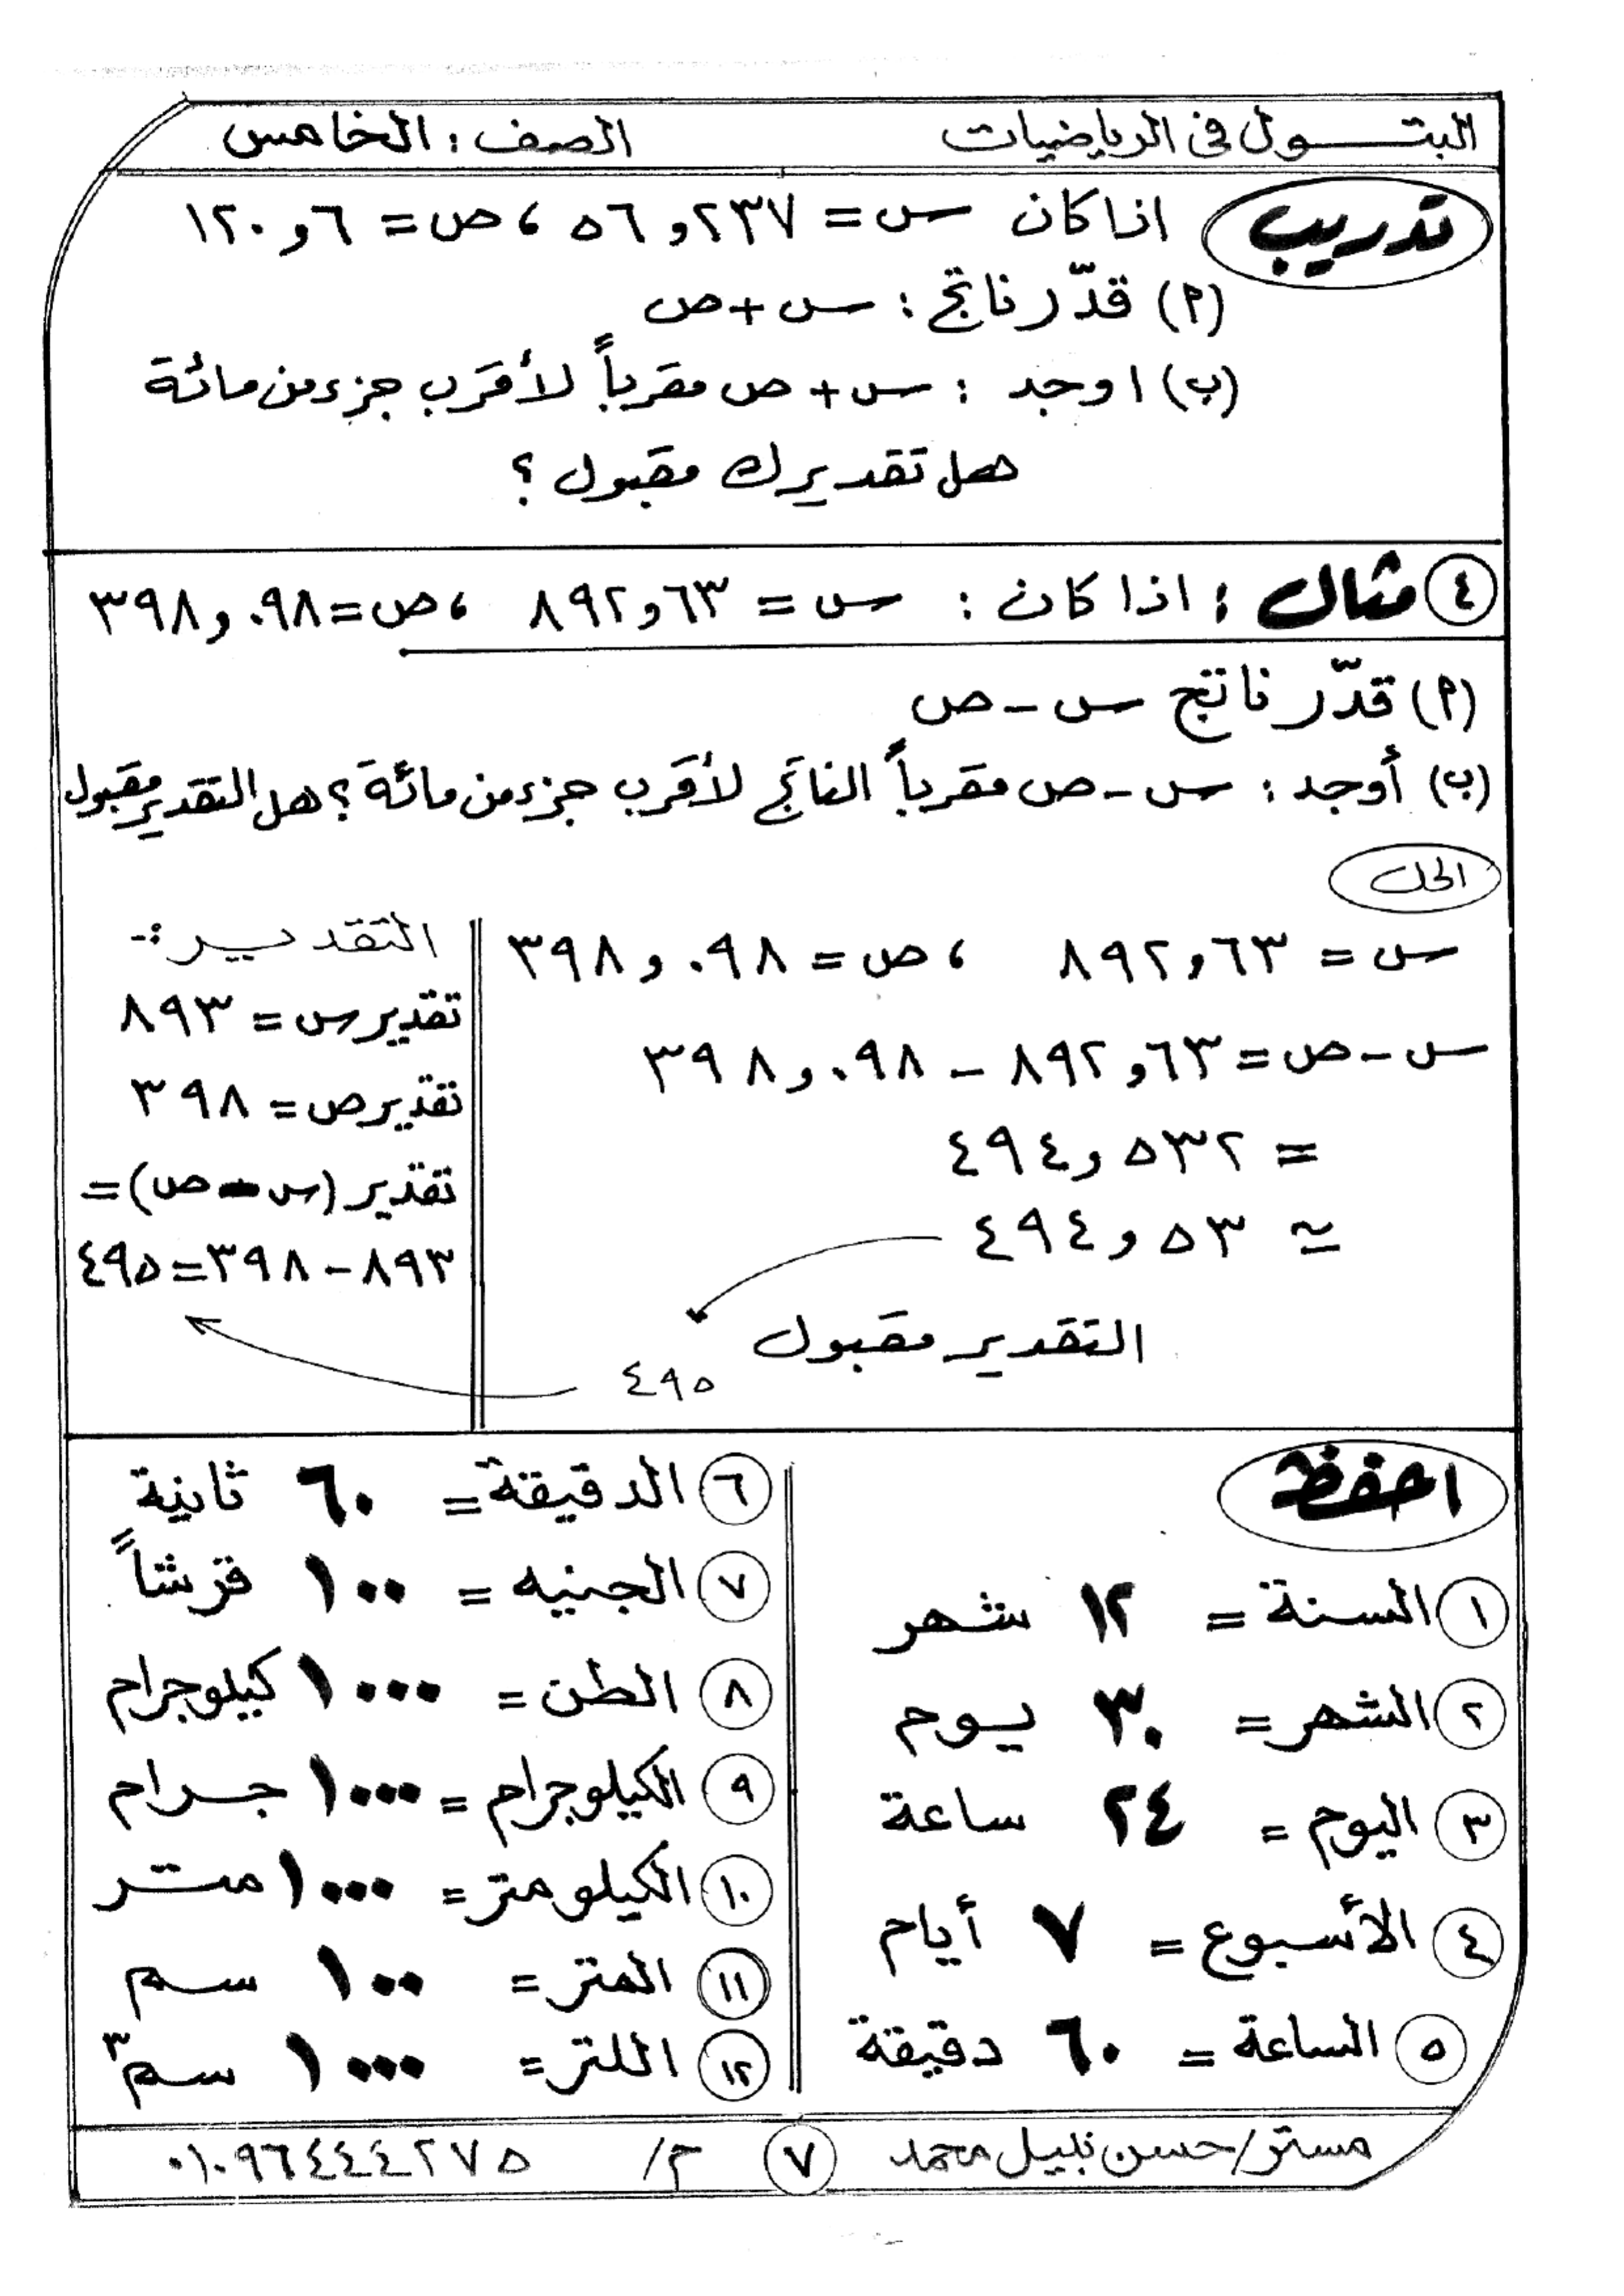 البتول في الرياضيات
الصف : الخامس
تدريب اذا كان س = ٥٦و٢٣٧ ، ص = ١٢٠و٦
(أ) قدّر ناتج : س + ص
(ب) اوجد : س + ص مقرباً لأقرب جزء من مائة
هل تقديرك مقبول ؟
٤ مثال : اذا كان : س = ٨٩٢و٦٣ ، ص = ٣٩٨و٠٩٨
(أ) قدّر ناتج س - ص
(ب) أوجد : س - ص مقرباً الناتج لأقرب جزء من مائة ؟ هل التقدير مقبول
الحل
س = ٨٩٢و٦٣ ، ص = ٣٩٨و٠٩٨
س - ص = ٨٩٢و٦٣ - ٣٩٨و٠٩٨
= ٤٩٤و٥٣٢
≃ ٤٩٤و٥٣
التقدير مقبول
٤٩٥
التقدير :-
تقدير س = ٨٩٣
تقدير ص = ٣٩٨
تقدير (س - ص) =
٨٩٣ - ٣٩٨ = ٤٩٥
احفظ
١ السنة = ١٢ شهر
٢ الشهر = ٣٠ يوم
٣ اليوم = ٢٤ ساعة
٤ الأسبوع = ٧ أيام
٥ الساعة = ٦٠ دقيقة
٦ الدقيقة = ٦٠ ثانية
٧ الجنيه = ١٠٠ قرشاً
٨ الطن = ١٠٠٠ كيلوجرام
٩ الكيلوجرام = ١٠٠٠ جرام
١٠ الكيلومتر = ١٠٠٠ متر
١١ المتر = ١٠٠ سم
١٢ اللتر = ١٠٠٠ سم٣
مستر/حسن نبيل محمد
٧
م/ ٠١٠٩٦٤٤٤٢٧٥